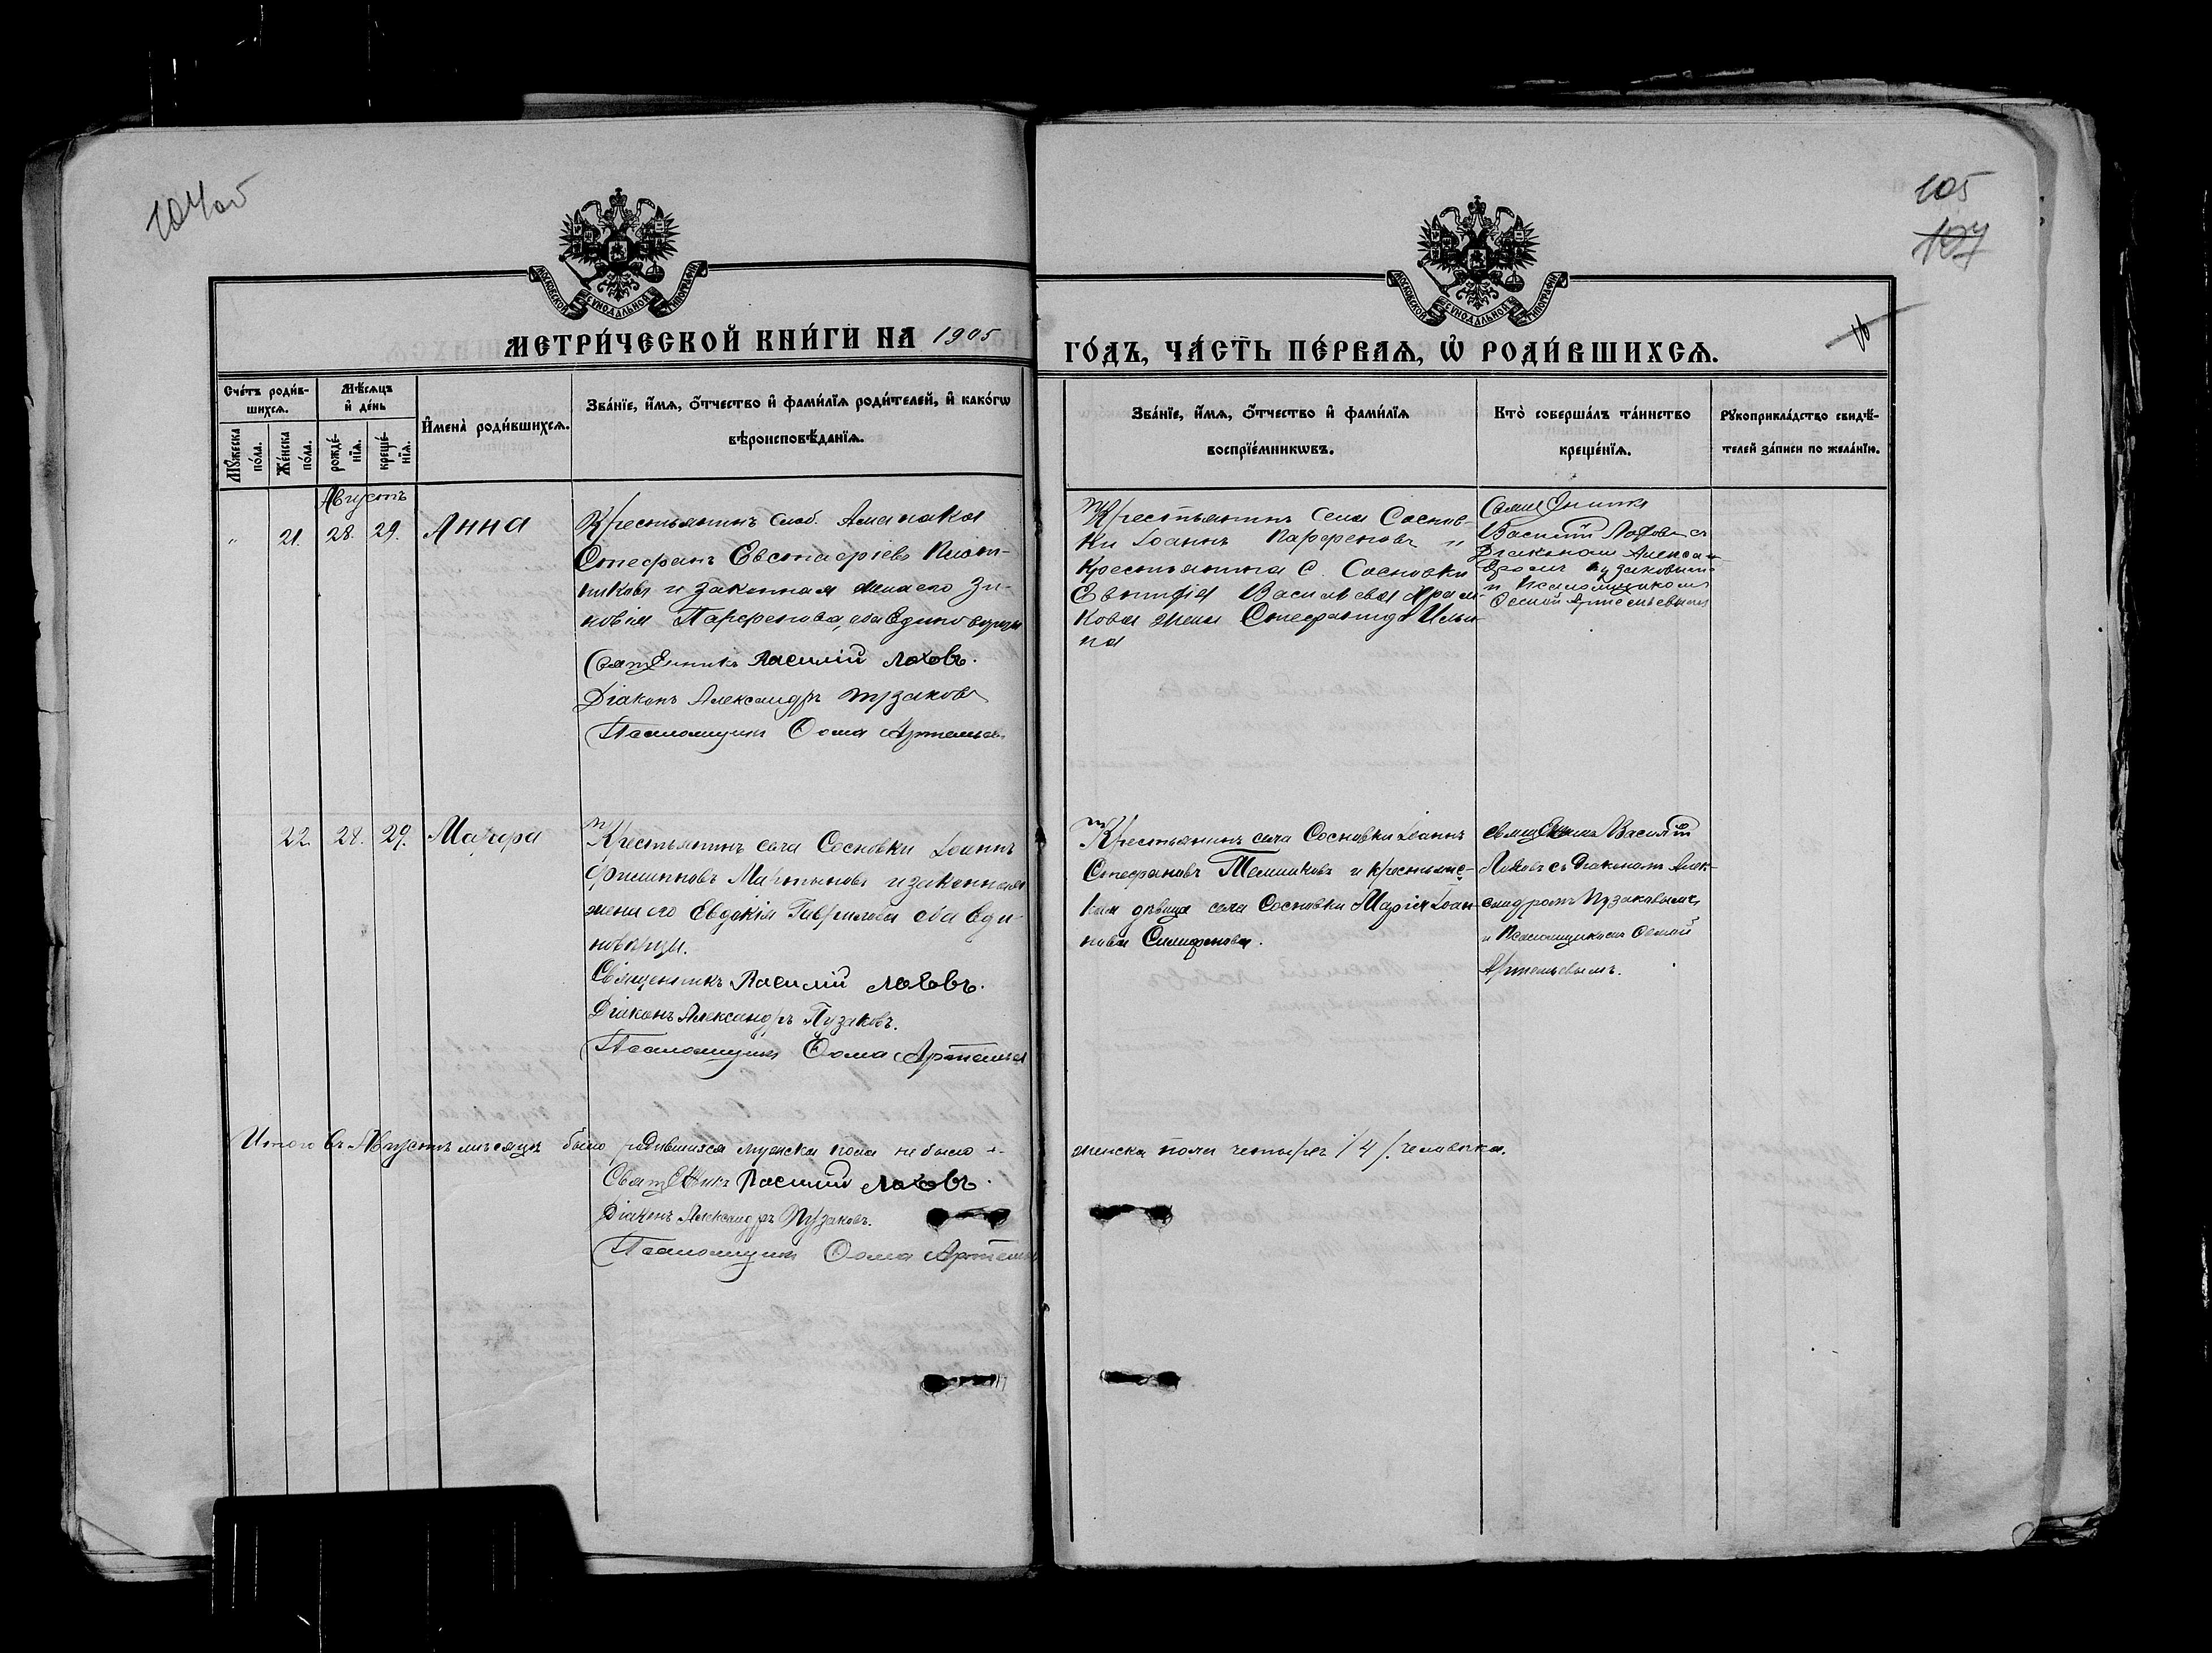 104об
105
107
МОСКОВСКОЙ СѴНОДАЛЬНОЙ ТИПОГРАФІИ
МОСКОВСКОЙ СѴНОДАЛЬНОЙ ТИПОГРАФІИ
МЕТРИ́ЧЕСКОЙ КНИ́ГИ НА 1905
ГО́ДЪ, ЧА́СТЬ ПЕ́РВАѦ, Ѡ РОДИ́ВШИХСѦ.
Сче́тъ роди́в-
шихсѧ.
Мѣ́сѧцъ
и҆ де́нь
Мꙋ́жеска
по́ла.
Же́нска
по́ла.
рожде́-
нїѧ.
креще́-
нїѧ.
И҆мена̀ роди́вшихсѧ.
Зва́нїе, и҆́мѧ, ѻ҆́тчество и҆ фами́лїѧ роди́телей, и҆ како́гѡ
вѣроисповѣ́данїѧ.
Зва́нїе, и҆́мѧ, ѻ҆́тчество и҆ фами́лїѧ
воспрїе́мникѡвъ.
Кто̀ соверша́лъ та́инство
креще́нїѧ.
Рꙋкоприкла́дство свидѣ́-
телей за́писи по жела́нїю.
Августъ
" 21. 28. 29. Анна
Крестьянинъ Слоб.
Стефанъ Евстафіевъ Плот-
никовъ и законная жена его Зи-
новія Парфенова, оба Единоверцы
Священникъ Василій Лоховъ.
Діаконъ Александръ Пузаковъ
Псаломщикъ Ѳома Артемьевъ
Крестьянинъ села Соснов-
ки Іоаннъ Парфеновъ и
Крестьянина с. Сосновки
Васильева
кова жена Стефанида Ильи
на
Священникъ
Василій Лоховъ съ
Діакономъ Алекса-
ндромъ Пузаковымъ
и Псаломщикомъ
Ѳомой Артемьевымъ
22. 28. 29. Мавра
Крестьянинъ села Сосновки Іоаннъ
Филипповъ Мартыновъ и законная
жена его Евдокія Гаврилова оба Еди-
новѣрцы.
Священникъ Василій Лоховъ.
Діаконъ Александръ Пузаковъ.
Псаломщикъ Ѳома Артемьев
Крестьянинъ села Сосновки Іоаннъ
Стефановъ и крестьянс-
кая дѣвица села Сосновки Марія Іоан-
нова
Священникъ Василій
Лоховъ съ Діакономъ Алек-
сандромъ Пузаковымъ
и Псаломщикомъ Ѳомой
Артемьевымъ.
Итого въ Августѣ мѣсяцѣ было родившихся мужска пола не было -
женска пола четыре /4/. человѣка.
Священникъ Василій Лоховъ.
Діаконъ Александръ Пузаковъ.
Псаломщикъ Ѳома Артемьев